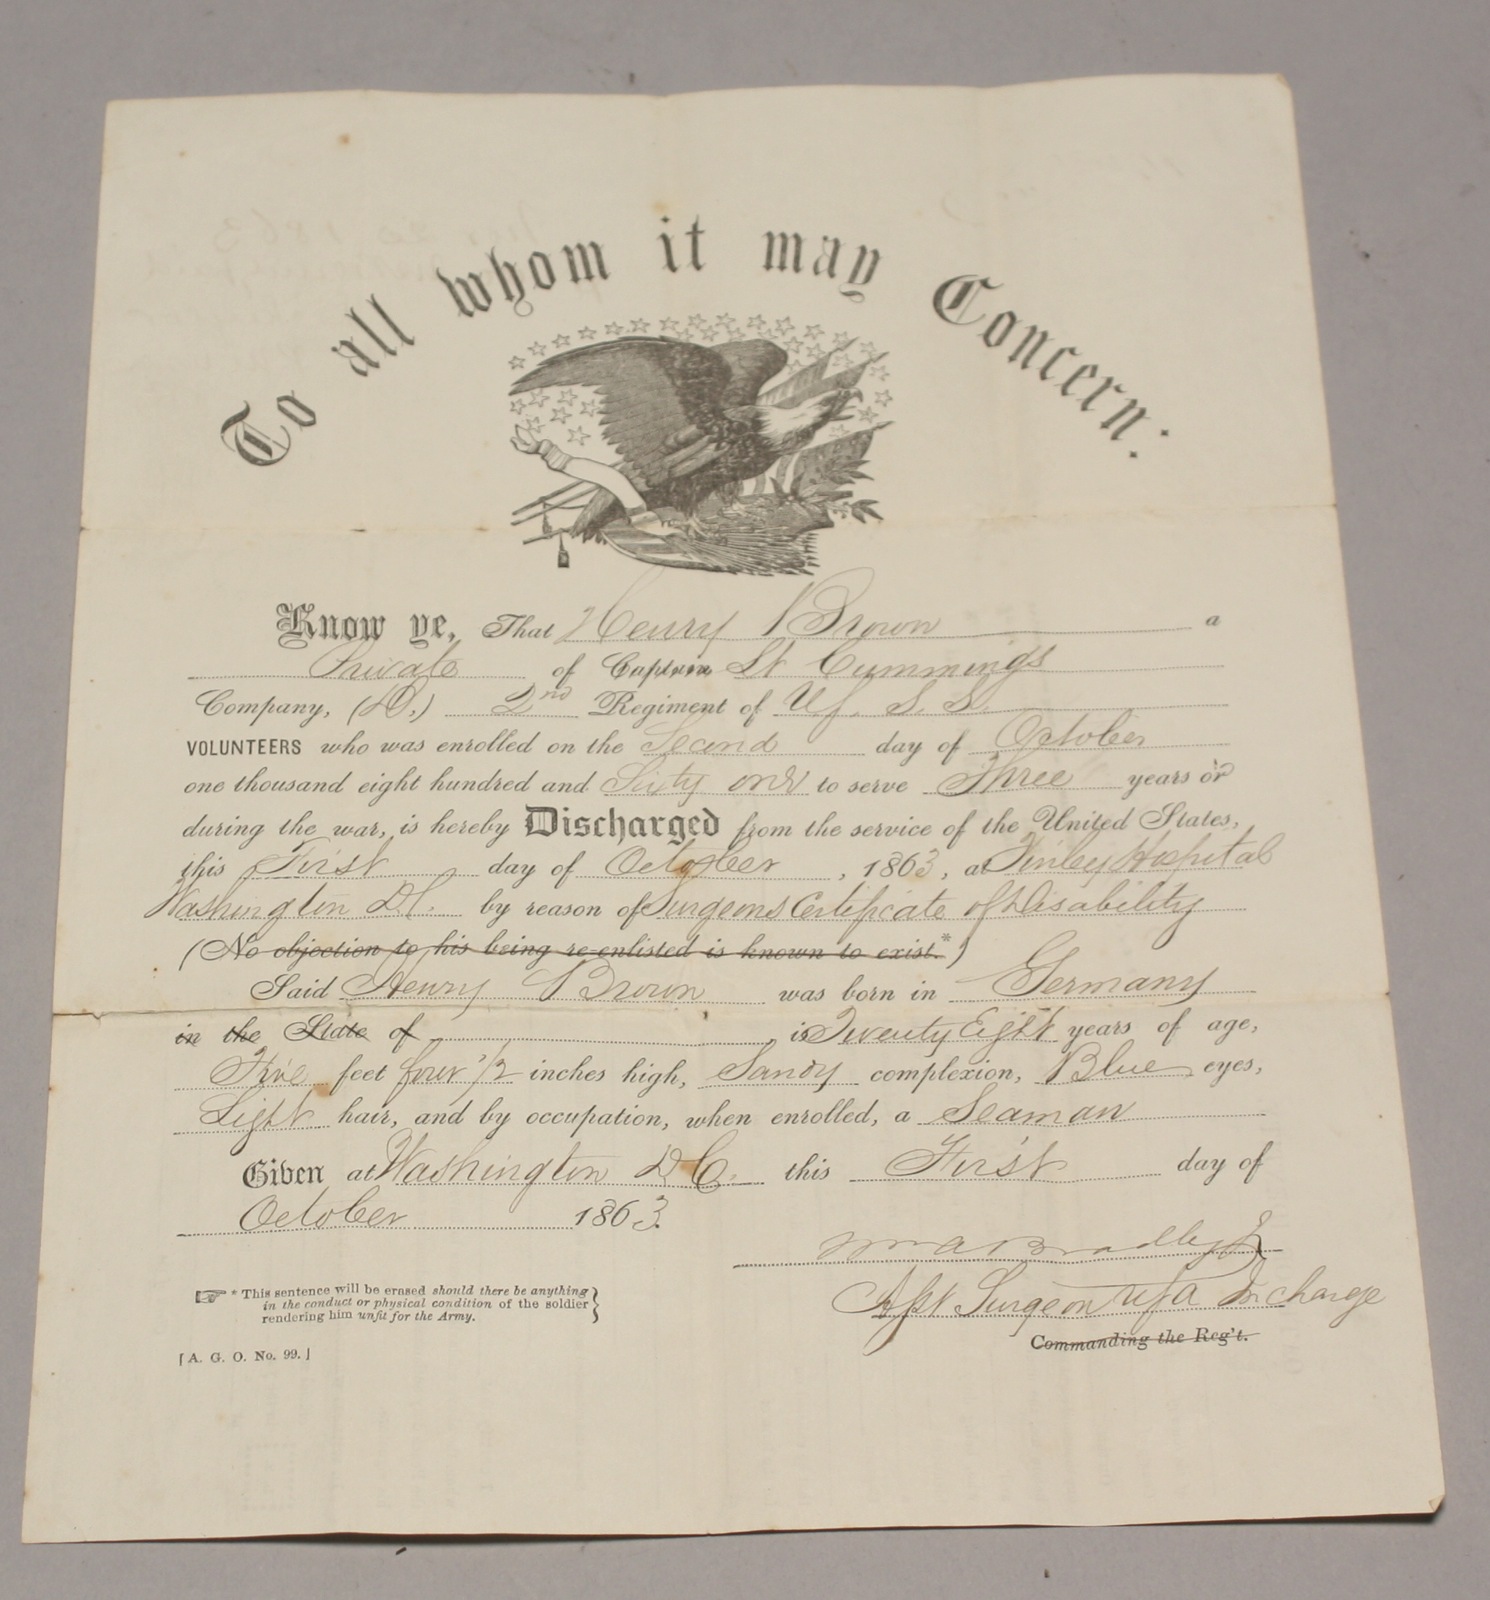 To all whom it may Concern:
Know ye, That Henry Brown a
Private of Captain Lt Cummings
Company, (D,) 2nd Regiment of U.S. S.S.
VOLUNTEERS who was enrolled on the Second day of October
one thousand eight hundred and Sixty one to serve Three years or
during the war, is hereby Discharged from the service of the United States,
this First day of October , 1863, at Finley Hospital
Washington D.C. by reason of Surgeons Certificate of Disability
(No objection to his being re-enlisted is known to exist.*)
Said Henry Brown was born in Germany
in the State of is Twenty Eight years of age,
Five feet four 1/2 inches high, Sandy complexion, Blue eyes,
Light hair, and by occupation, when enrolled, a Seaman
Given at Washington D.C. this First day of
October 1863.
Wm A Bradley Jr
Asst Surgeon USA In charge
Commanding the Reg't.
* This sentence will be erased should there be anything
in the conduct or physical condition of the soldier
rendering him unfit for the Army.
[A. G. O. No. 99.]